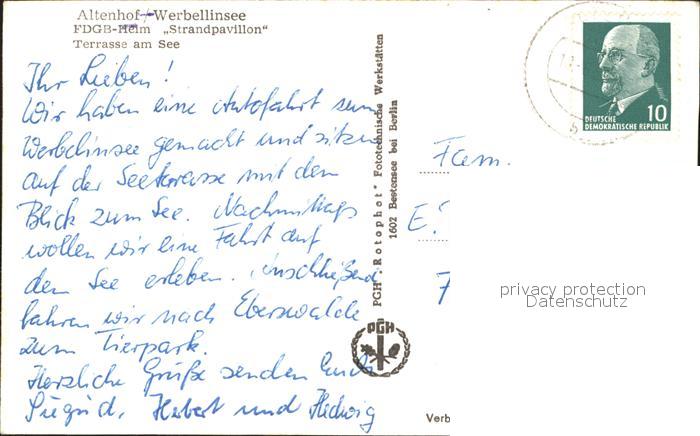 Altenhof-Werbellinsee
FDGB-Heim „Strandpavillon"
Terrasse am See
Ihr Lieben!
Wir haben eine Autofahrt zum
Werbelinsee gemacht und sitzen
auf der Seeterrasse mit dem
Blick zum See. Nachmittags
wollen wir eine Fahrt auf
dem See erleben. Anschließend
fahren wir nach Eberswalde
zum Tierpark.
Herzliche Grüße senden Euch
Siegrid, Herbert und Hedwig
PGH „Rotophot" Fototechnische Werkstätten
1602 Bestensee bei Berlin
PGH
DEUTSCHE
DEMOKRATISCHE REPUBLIK
10
Fam.
E.
privacy protection
Datenschutz
Verb